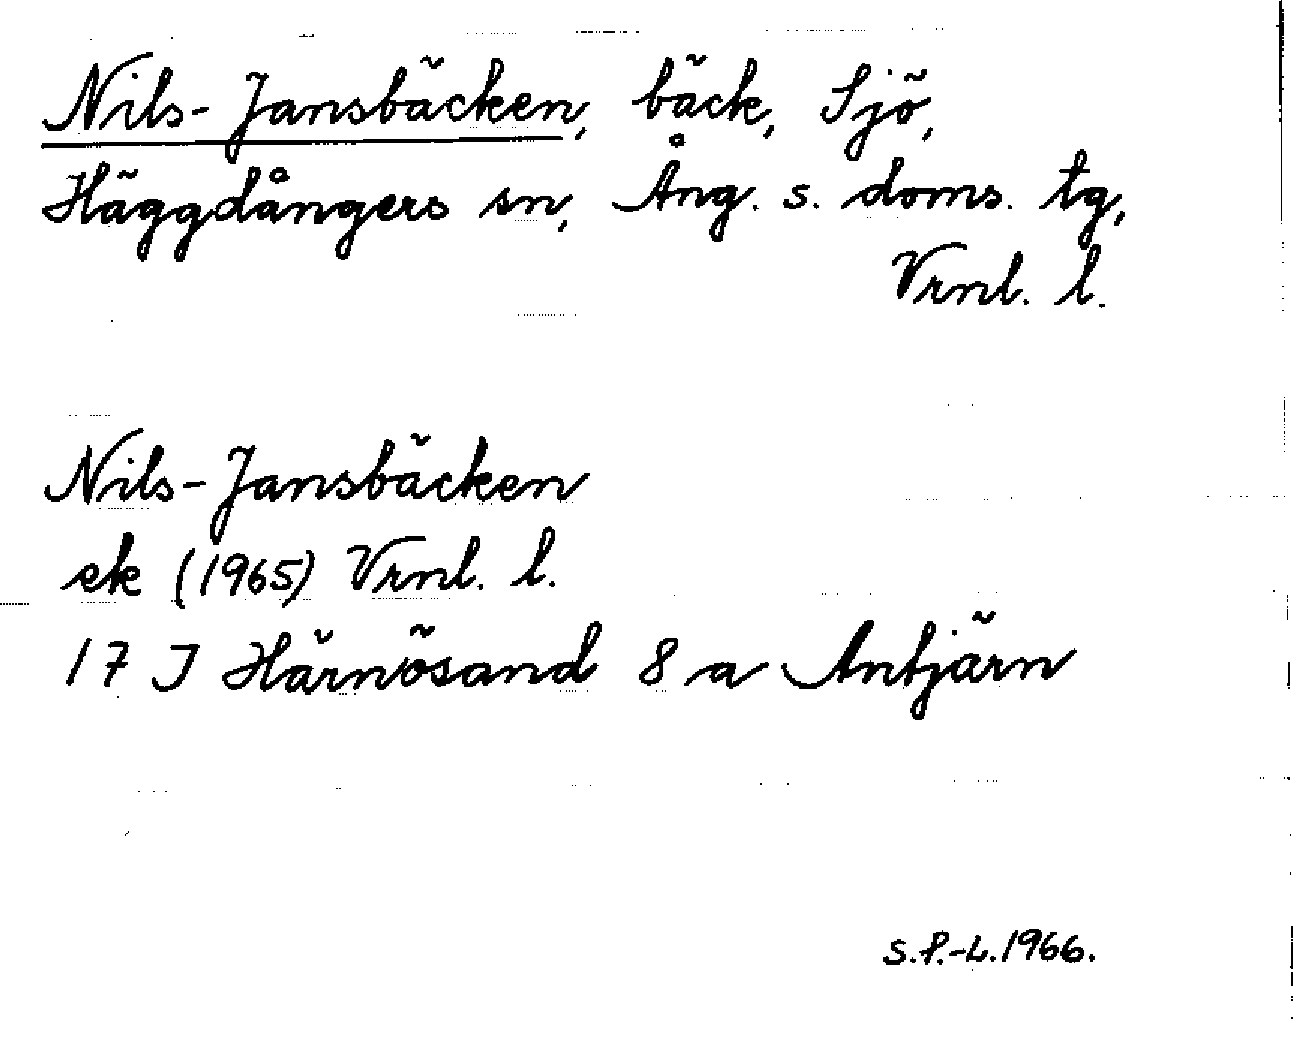 Nils-Jansbäcken, bäck, Sjö,
Häggdångers sn, Ång. s. doms. tg,
Vrnl. l.
Nils-Jansbäcken
ek (1965) Vrnl. l.
17 J Härnösand 8 a Antjärn
S.P.-L. 1966.